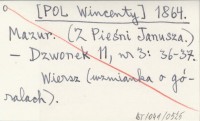 [POL Wincenty] 1864.
Mazur. (Z Pieśni Janusza.)
— Dzwonek 11, nr 3: 36-37.
Wiersz (wzmianka o gó-
ralach).